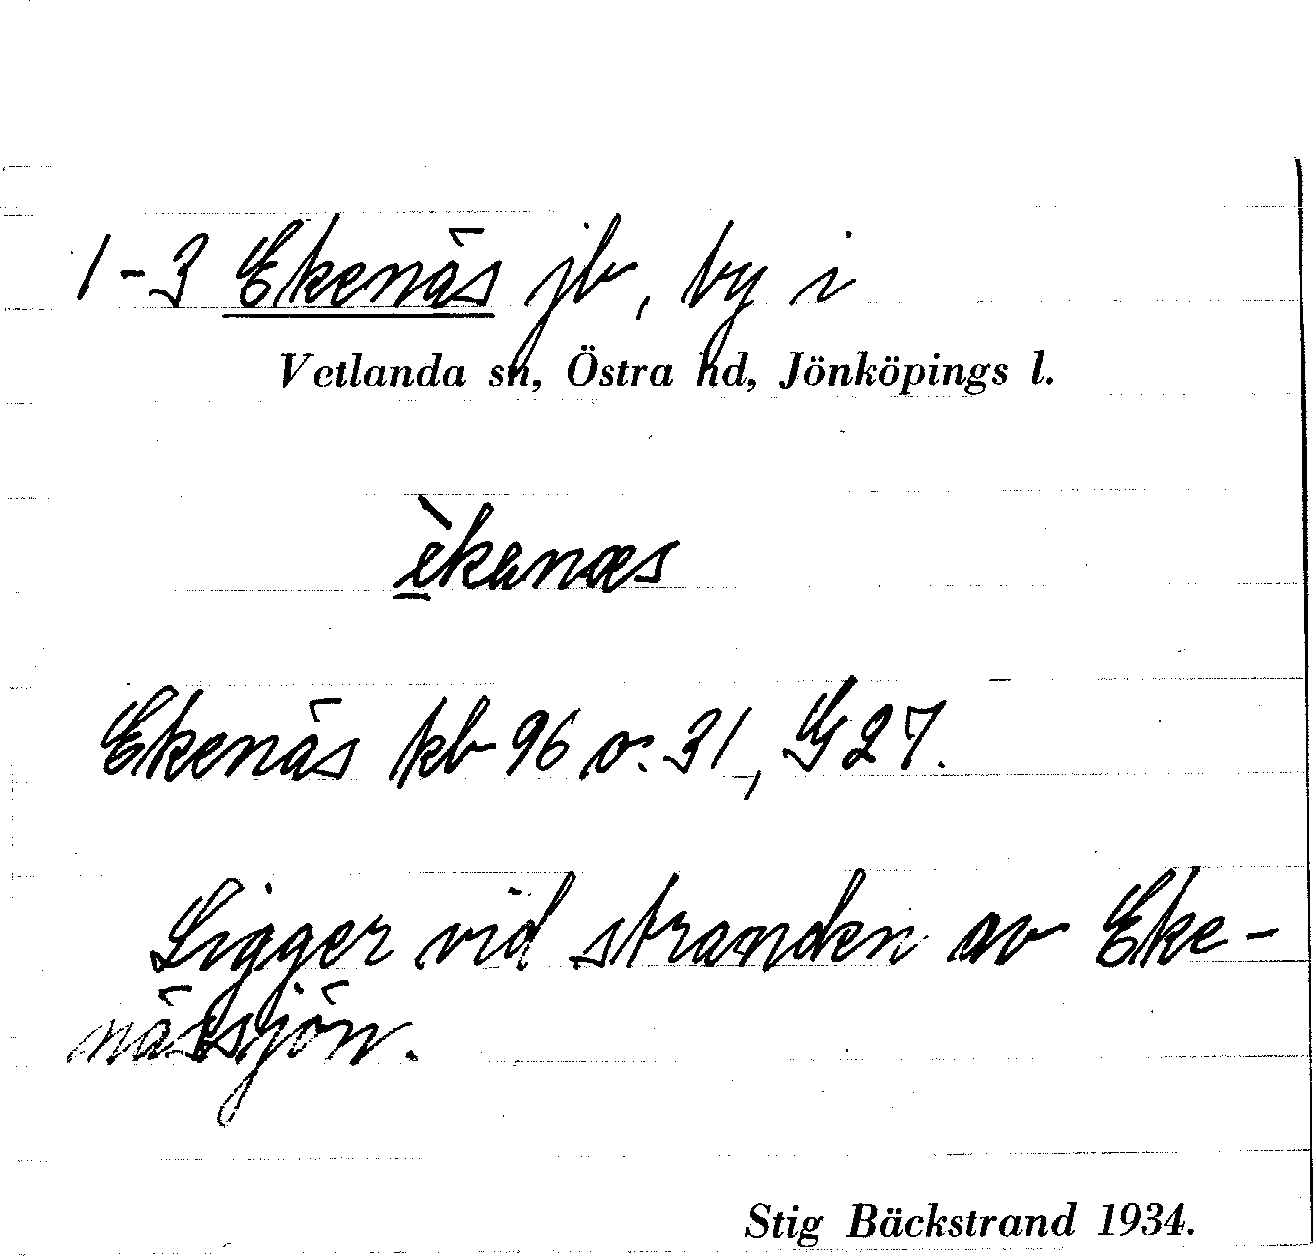 1-3 Ekenäs jb, by i
Vetlanda sn, Östra hd, Jönköpings l.
èkenæs
Ekenäs kb 96 o. 31, G 27.
Ligger vid stranden av Eke-
nässjön.
Stig Bäckstrand 1934.